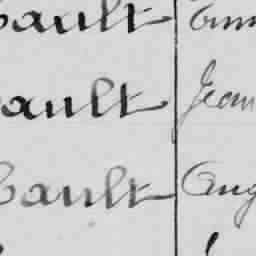 bault
bault Jean
bault Aug